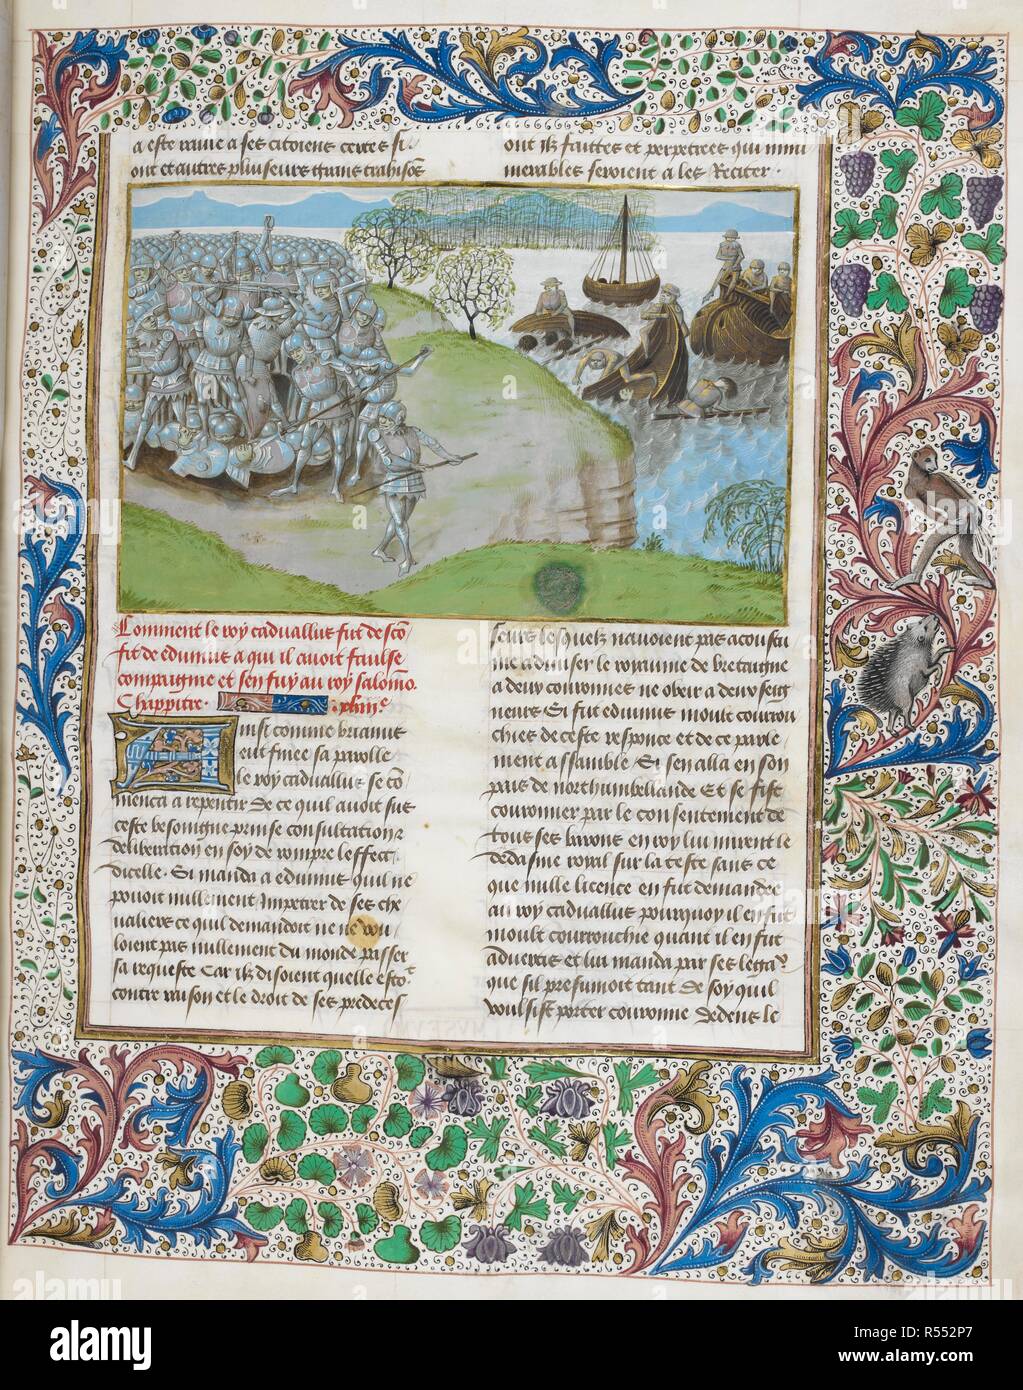 a este traue a ses citoiens certes si
ont et autres pluiseurs grans trahisons
ont ilz faittes et perpetrees qui innu
merables seroient a les Reciter .
Comment le roy caduallus fut descō
fit de eduuus a qui il auoit faulse
compaignie et sen fuy au roy salomō.
Chappitre. .xliiii.e
Ainsi comme brianus
eut finee sa parolle
le roy caduallus se cō
menca a repentir de ce quil auoit sur
ceste besoingne prinse consultation z
deliberation en soy de rompre leffect
dicelle . Si manda a eduuus quil ne
pouoit nullement Impetrer de ses che
ualiers ce quil demandoit ne ne vou
loient pas nullement du monde passer
sa requeste Car ilz disoient quelle estoit
contre raison et le droit de ses predeces
seurs lesquelz nauoient pas acoustu
me a diuiser le royaume de bretaigne
a deux couronnes ne obeir a deux seig
neurs Si fut eduuus moult courrou
chies de ceste responce et de ce parle
ment assamble Si sen alla en son
pais de northumbellande Et se fist
couronner par le consentement de
tous ses barons en roy lui mirent le
dedasme royal sur la teste sans ce
que nulle licence en fut demandee
au roy caduallus pourquoy il en fut
moult courrouchie quant il en fut
aduertis et lui manda par ses legas
que sil presumoit tant de soy quil
voulsist porter couronne dedens le
alamy
Image ID: R552P7
www.alamy.com